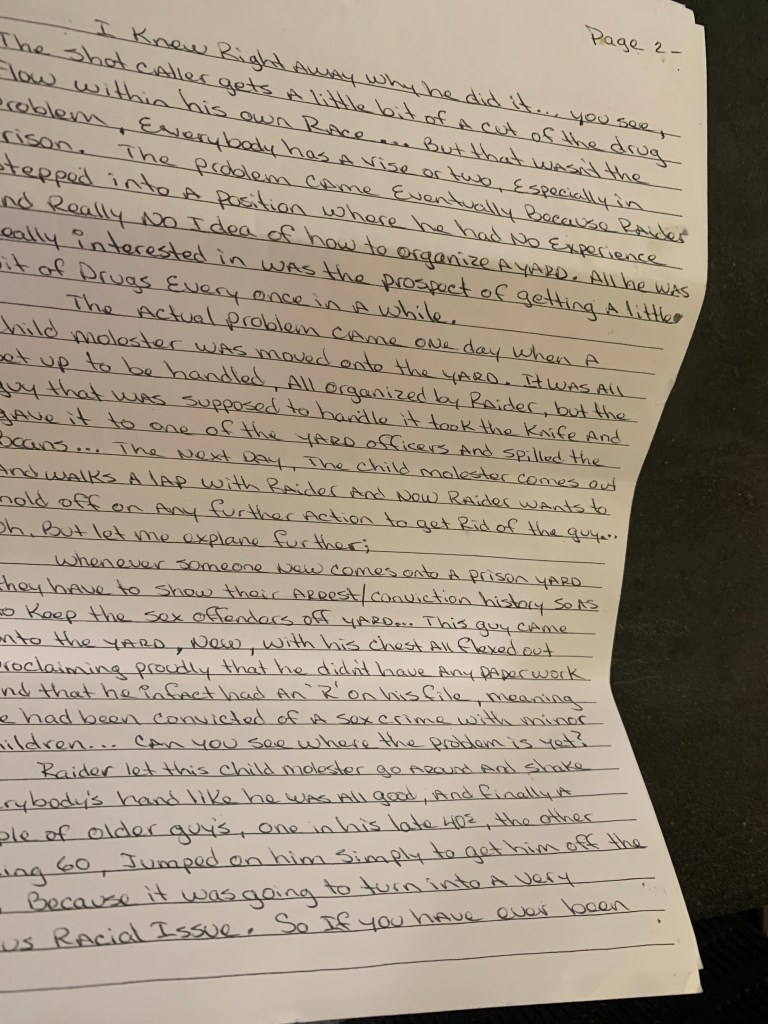 Page 2-
I Knew Right AWAY why he did it... you see,
The shot caller gets A little bit of A cut of the drug
flow within his own RACE... But that wasn't the
roblem, Everybody has A vise or two, Especially in
rison. The problem CAME Eventually Because Raider
tepped into A position where he had No Experience
nd Really No Idea of how to organize A YARD. All he WAS
eally interested in WAS the prospect of getting A little
it of Drugs Every once in A while.
The Actual problem CAME ONE day when A
hild molester WAS moved onto the YARD. It WAS All
et up to be handled, All organized by Raider, but the
guy that WAS supposed to handle it took the Knife And
gave it to one of the YARD officers And spilled the
beans... The Next Day, The child molester comes out
And walks A lAP with Raider And Now Raider wants to
hold off on Any further Action to get Rid of the guy...
oh, But let me explane further;
Whenever someone New comes onto A prison YARD
they have to show their Arrest/conviction history so AS
to Keep the sex offendars off YARD... This guy CAME
nto the YARD, New, with his chest All flexed out
roclaiming proudly that he didn't have Any paperwork
nd that he infact had an 'R' on his file, meaning
e had been convicted of A sex crime with minor
ildren... CAN you see where the problem is yet?
Raider let this child molester go Around And shake
rybody's hand like he WAS All good, And finally A
ple of older guy's, one in his late 40s, the other
ing 60, Jumped on him simply to get him off the
, Because it was going to turn into A very
us Racial Issue. So If you have ever been